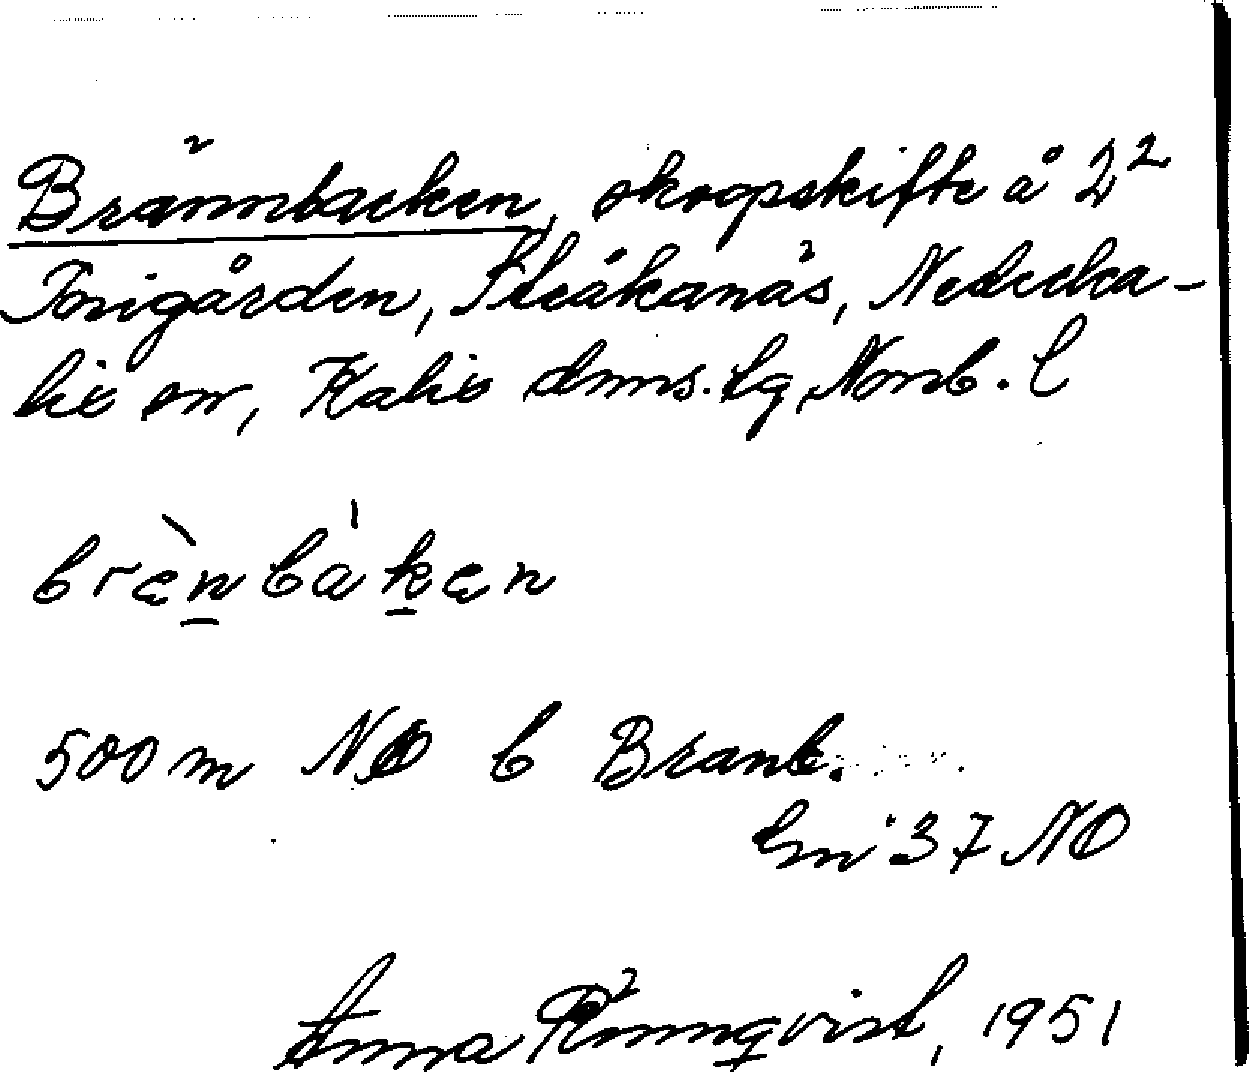 Brännbacken, skogsskifte å 2²
Tonigården, Stråkanäs, Nederka-
lix sn, Kalix dms. lg, Norrb. l
bræ̀nbàkæn
500 m NO b Brank.
Em 37 NO
Anna Rönnqvist, 1951